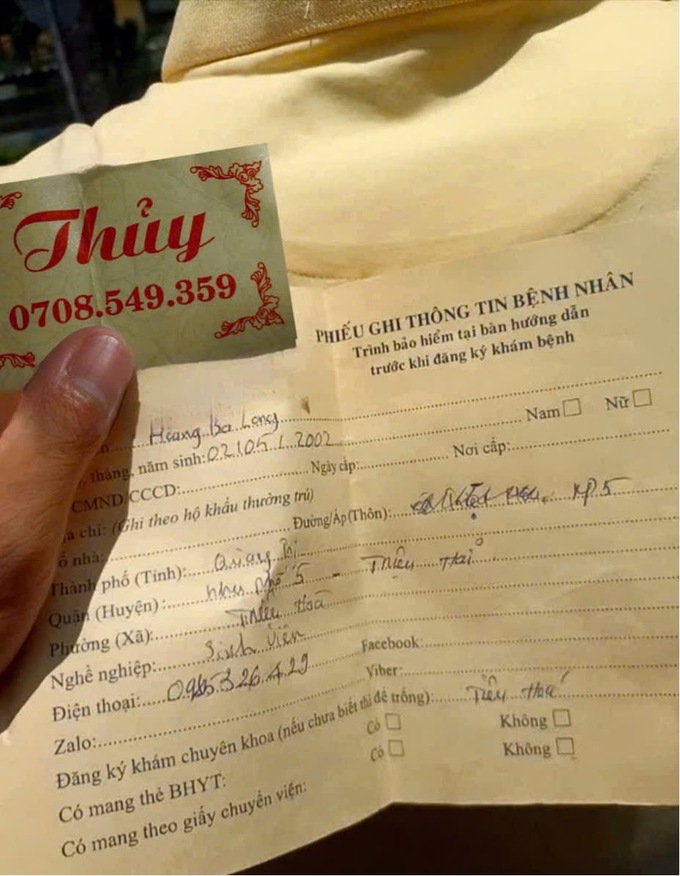 Thủy
0708.549.359
PHIẾU GHI THÔNG TIN BỆNH NHÂN
Trình bảo hiểm tại bàn hướng dẫn
trước khi đăng ký khám bệnh
Hoàng Bá Long
Nam Nữ
tháng, năm sinh: 02/05/2002
CMND/CCCD: Ngày cấp: Nơi cấp:
chỉ: (Ghi theo hộ khẩu thường trú)
nhà: Đường/Ấp(Thôn): KP5
Thành phố (Tỉnh): Quảng Trị
Quận (Huyện): khu phố 5 - Triệu Hải
Phường (Xã): Triệu Hoà
Nghề nghiệp: Sinh viên
Điện thoại: Facebook:
Zalo: Viber:
Đăng ký khám chuyên khoa (nếu chưa biết thì để trống): Tiêu Hoá
Có mang thẻ BHYT: Có Không
Có mang theo giấy chuyển viện: Có Không